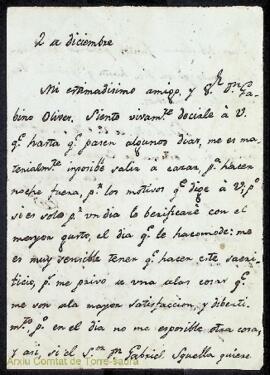 2 a diciembre
Mi estimadisimo amigo, y Sr. Dn. Ga-
bino Oliver. Siento vivamte. decirle à V.
qe. hasta qe. pasen algunos dias, me es ma-
terialmte. imposible salir a cazar, pa. hacer
noche fuera, pr. los motivos qe. dige à V; po.
si es solo pa. un dia lo berificaré con el
mayor gusto, el dia qe. le hacomode: me
es muy sencible tener qe. hacer este sacri-
ficio, pr. me privo de una de las cosas qe.
me son de la mayor satisfaccion, y diberti-
mto., po. en el dia no me es posible otra cosa,
y asi, si el Sor. Dn. Gabriel Squella quiere
Arxiu Comtat de Torre-saura